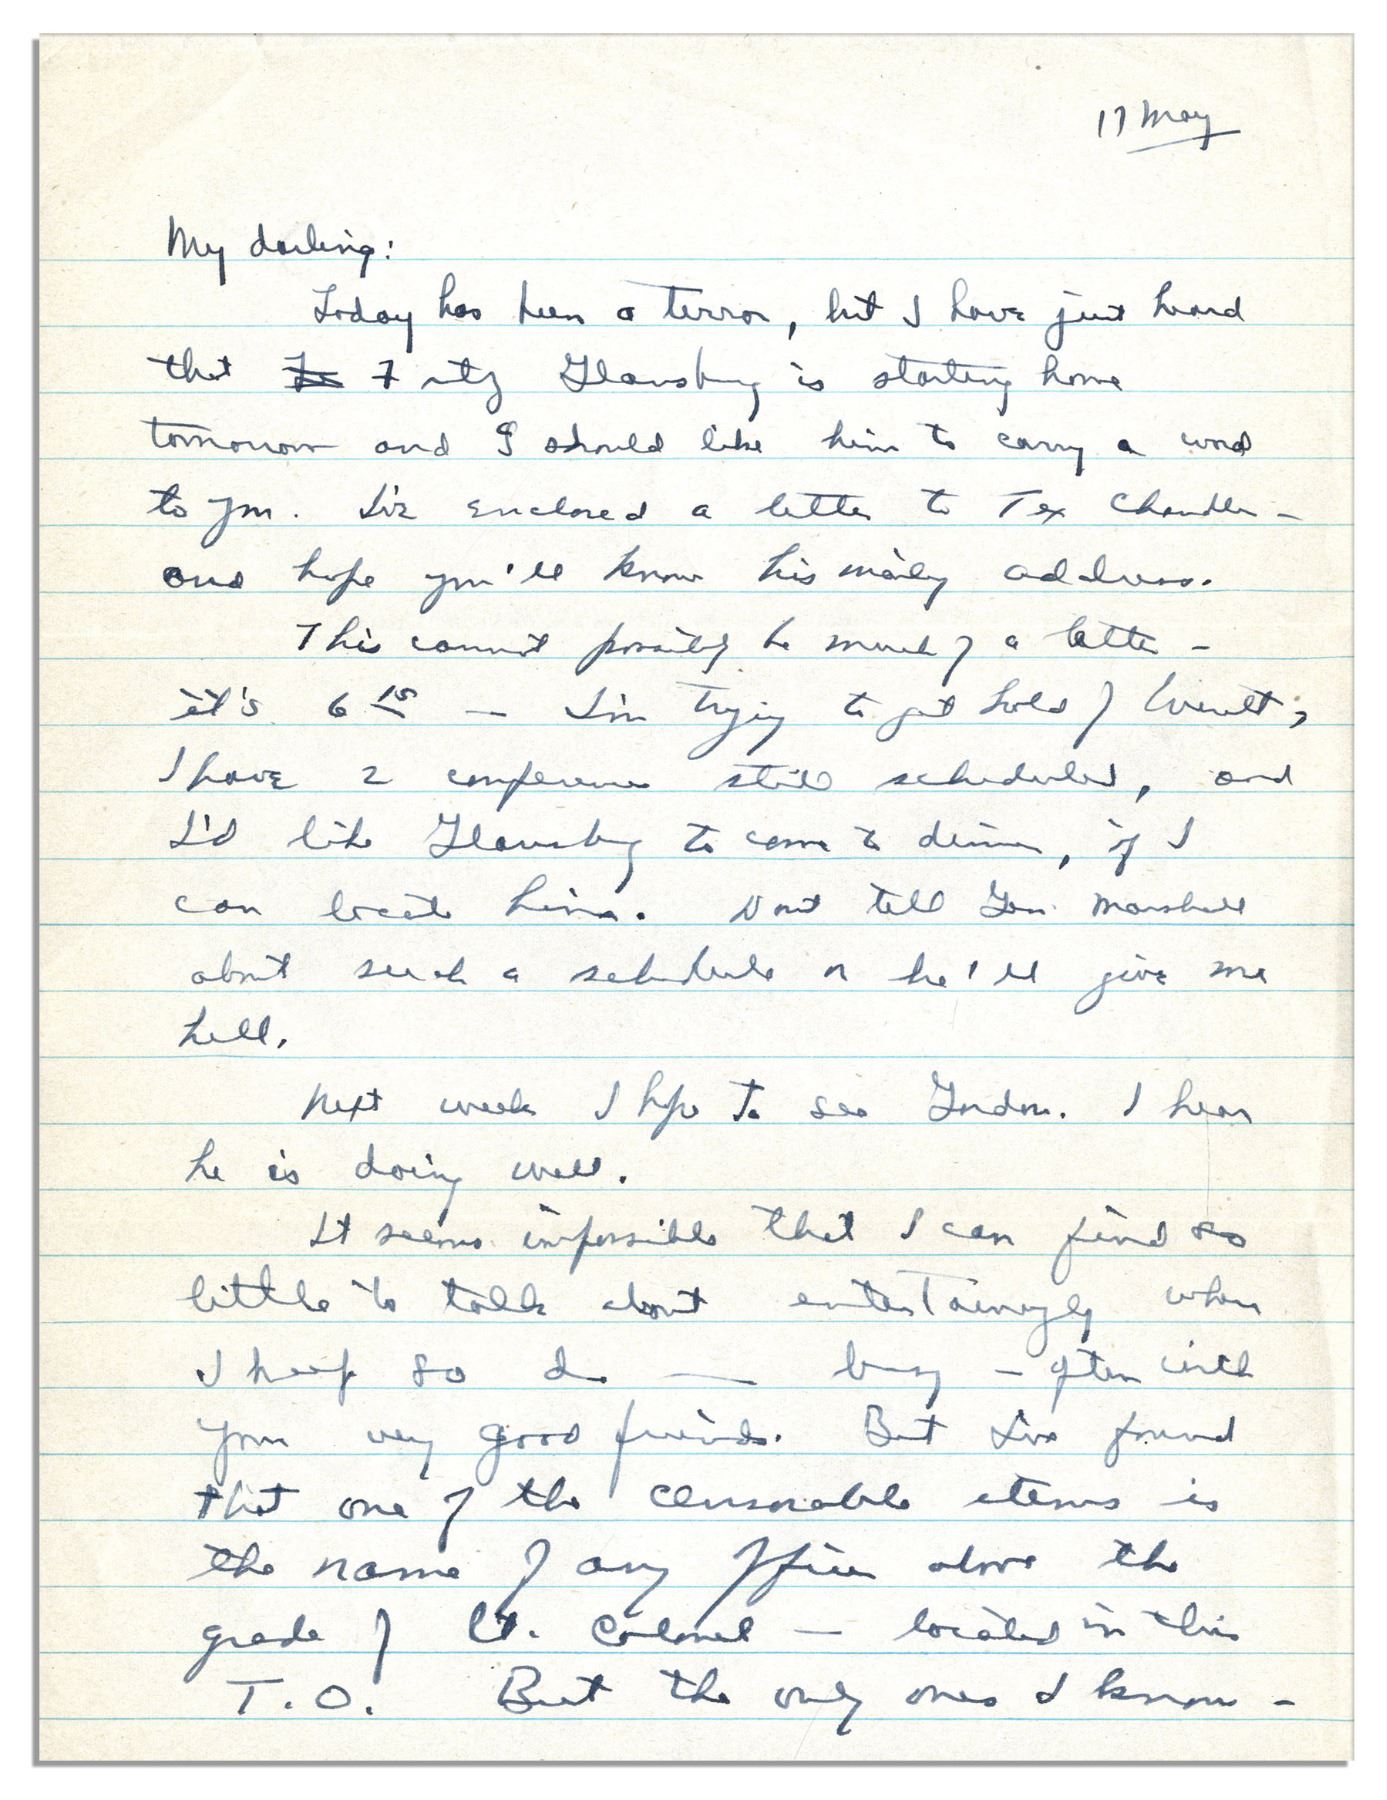 17 May
My darling:
Today has been a terror, but I have just heard
that Fritz is starting home
tomorrow and I should like him to carry a word
to you. I've enclosed a letter to Tex Chandler –
and hope you'll know his mailing address.
This cannot possibly be much of a letter –
it's 6 15 — I'm trying to get hold of Everett;
I have 2 conferences still scheduled, and
I'd like to come to dinner, if I
can locate him. Don't tell Gen. Marshall
about such a schedule or he'll give me
hell.
Next week I hope to see Gordon. I hear
he is doing well.
It seems impossible that I can find so
little to talk about entertainingly when
I keep so d— — busy – often with
your very good friends. But I've found
that one of the censorable items is
the name of any officer above the
grade of Lt. Colonel — located in this
T.O. But the only ones I know –